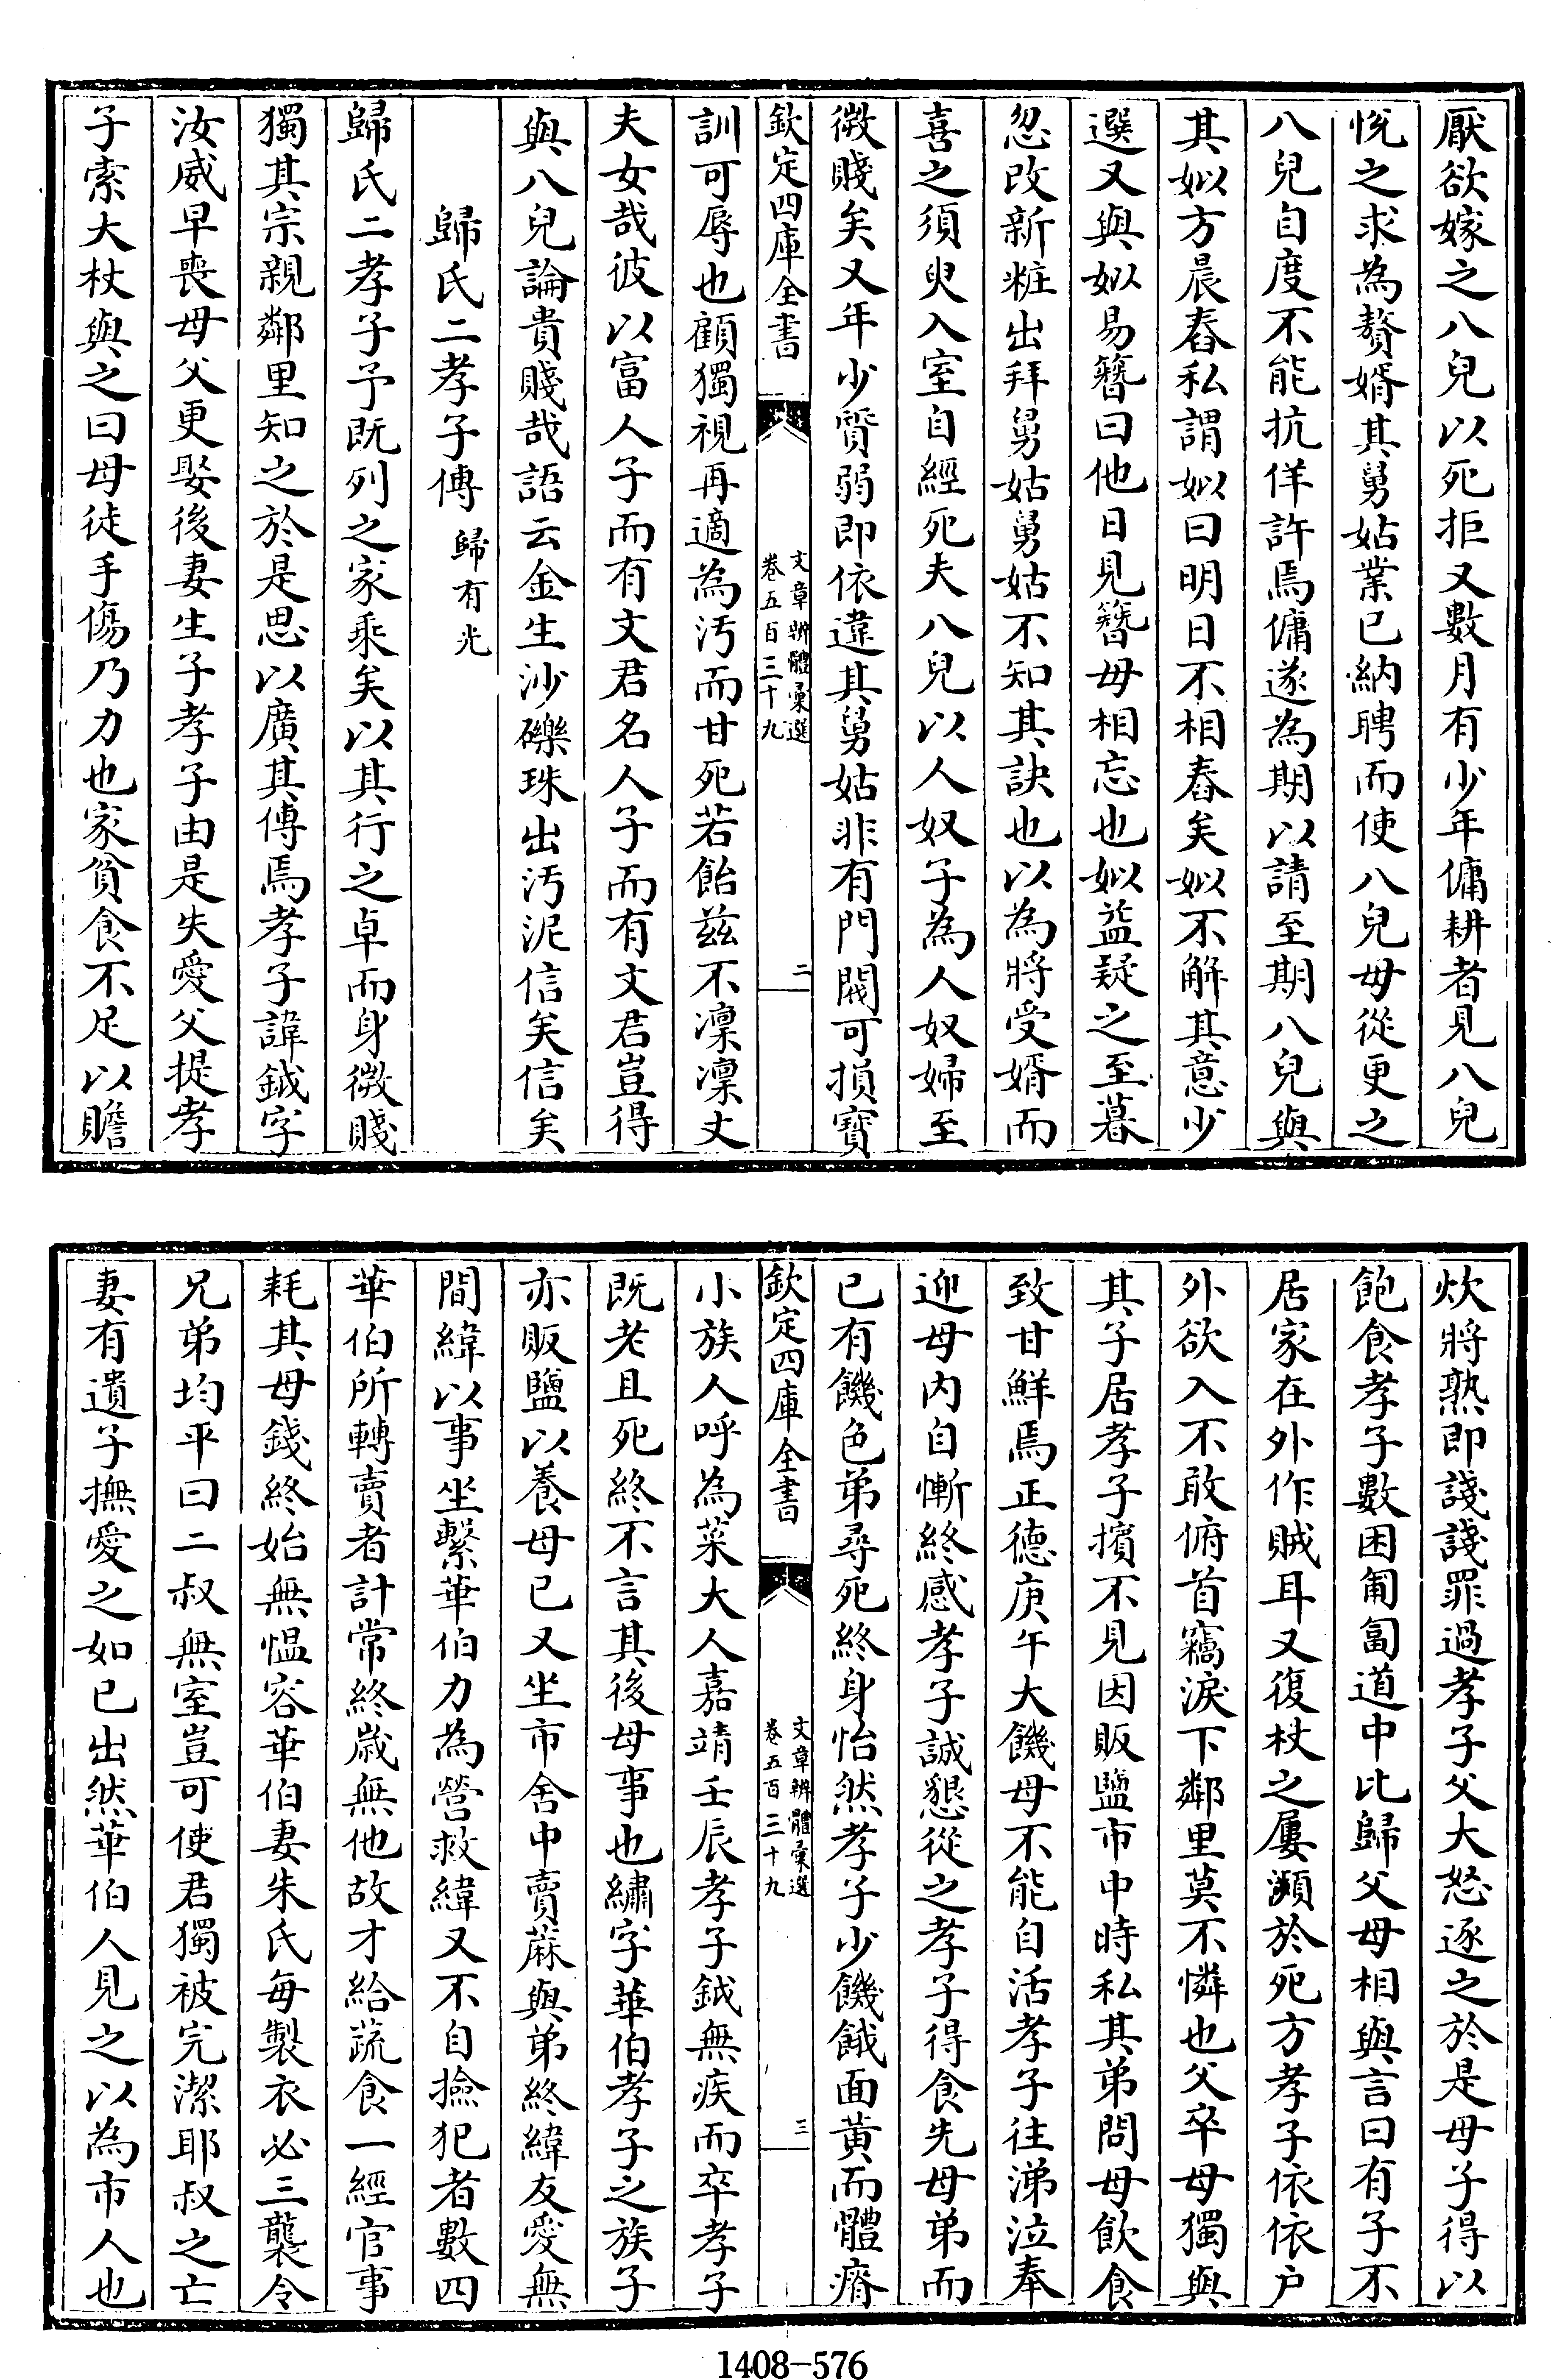 厭欲嫁之八兒以死拒又數月有少年傭耕者見八兒
悅之求為贅婿其舅姑業已納聘而使八兒母從更之
八兒自度不能抗佯許焉傭遂為期以請至期八兒與
其姒方晨舂私謂姒曰明日不相舂矣姒不解其意少
選又與姒易簪曰他日見簪毋相忘也姒益疑之至暮
忽改新粧出拜舅姑舅姑不知其訣也以為將受婿而
喜之須臾入室自經死夫八兒以人奴子為人奴婦至
微賤矣又年少質弱即依違其舅姑非有門閥可損寶
欽定四庫全書
文章辨體彙選
卷五百三十九
二
訓可辱也顧獨視再適為汚而甘死若飴兹不凜凜丈
夫女哉彼以富人子而有文君名人子而有文君豈得
與八兒論貴賤哉語云金生沙礫珠出汚泥信矣信矣
歸氏二孝子傳 歸有光
歸氏二孝子予既列之家乘矣以其行之卓而身微賤
獨其宗親鄰里知之於是思以廣其傳焉孝子諱鉞字
汝威早喪母父更娶後妻生子孝子由是失愛父提孝
子索大杖與之曰毋徒手傷乃力也家貧食不足以贍
炊將熟即諓諓罪過孝子父大怒逐之於是母子得以
飽食孝子數困匍匐道中比歸父母相與言曰有子不
居家在外作賊耳又復杖之屢瀕於死方孝子依依户
外欲入不敢俯首竊淚下鄰里莫不憐也父卒母獨與
其子居孝子擯不見因販鹽市中時私其弟問母飲食
致甘鮮焉正德庚午大饑母不能自活孝子往涕泣奉
迎母内自慚終感孝子誠懇從之孝子得食先母弟而
已有饑色弟尋死終身怡然孝子少饑餓面黃而體瘠
欽定四庫全書
文章辨體彙選
卷五百三十九
三
小族人呼為菜大人嘉靖壬辰孝子鉞無疾而卒孝子
既老且死終不言其後母事也繡字華伯孝子之族子
亦販鹽以養母已又坐市舍中賣蔴與弟終緯友愛無
間緯以事坐繫華伯力為營救緯又不自撿犯者數四
華伯所轉賣者計常終歲無他故才給蔬食一經官事
耗其母錢終始無慍容華伯妻朱氏每製衣必三襲令
兄弟均平曰二叔無室豈可使君獨被完潔耶叔之亡
妻有遺子撫愛之如已出然華伯人見之以為市人也
1408-576